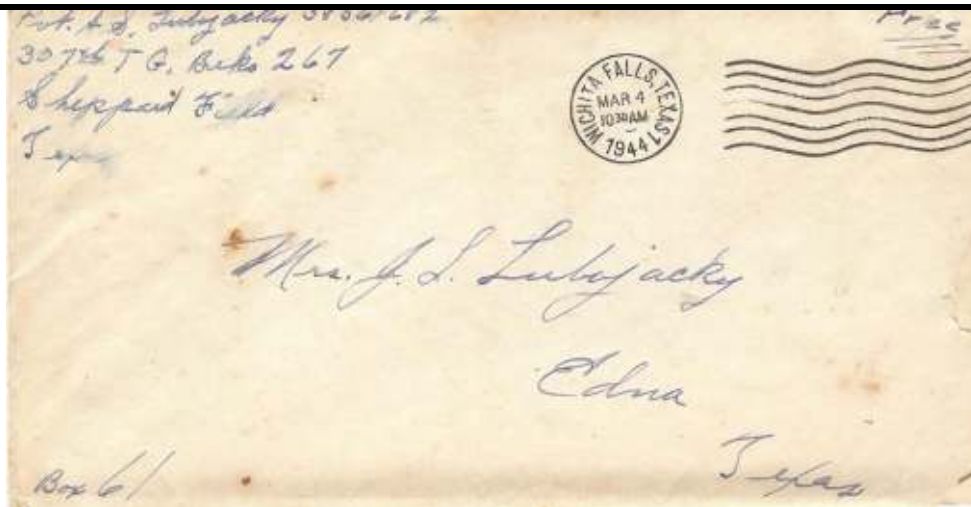 Pvt. A. S. Lubojacky
307th T G. Bks 267
Sheppard Field
Texas
Free
WICHITA FALLS, TEXAS 1
MAR 4
10 30 AM
1944
Mrs. J. S. Lubojacky
Edna
Texas
Box 61